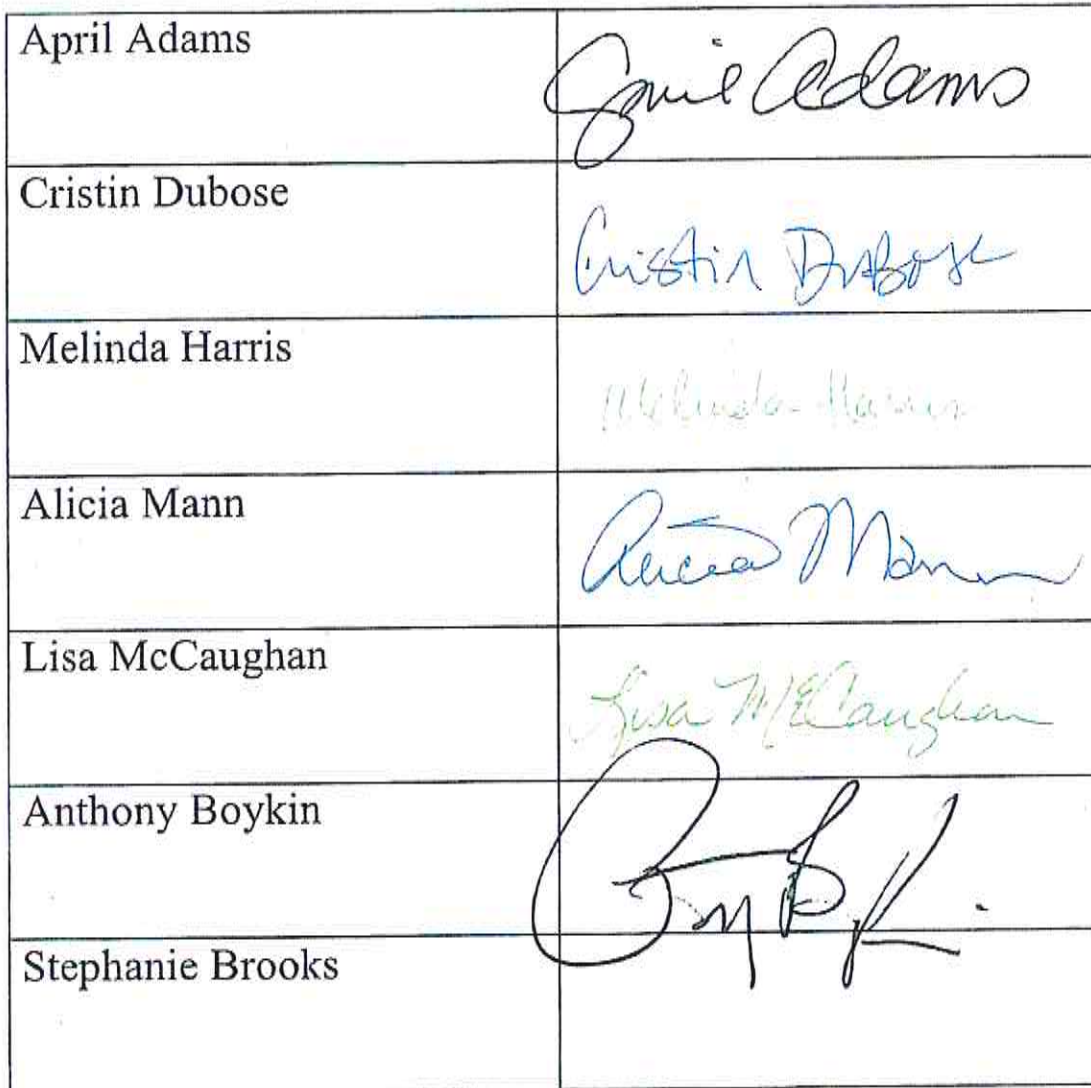 April Adams
April Adams
Cristin Dubose
Cristin DuBose
Melinda Harris
Melinda Harris
Alicia Mann
Alicia Mann
Lisa McCaughan
Lisa McCaughan
Anthony Boykin
Stephanie Brooks